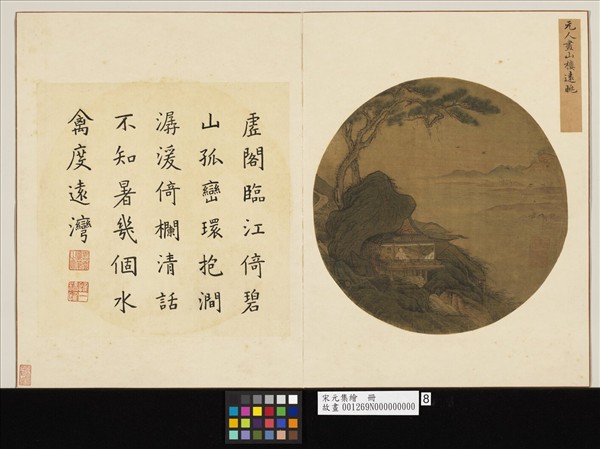 元人畫山樓遠眺
虛閣臨江倚碧
山孤巒環抱澗
潺湲倚欄清話
不知暑幾個水
禽度遠灣
宋元集繪 冊
故畫 001269N000000000
8